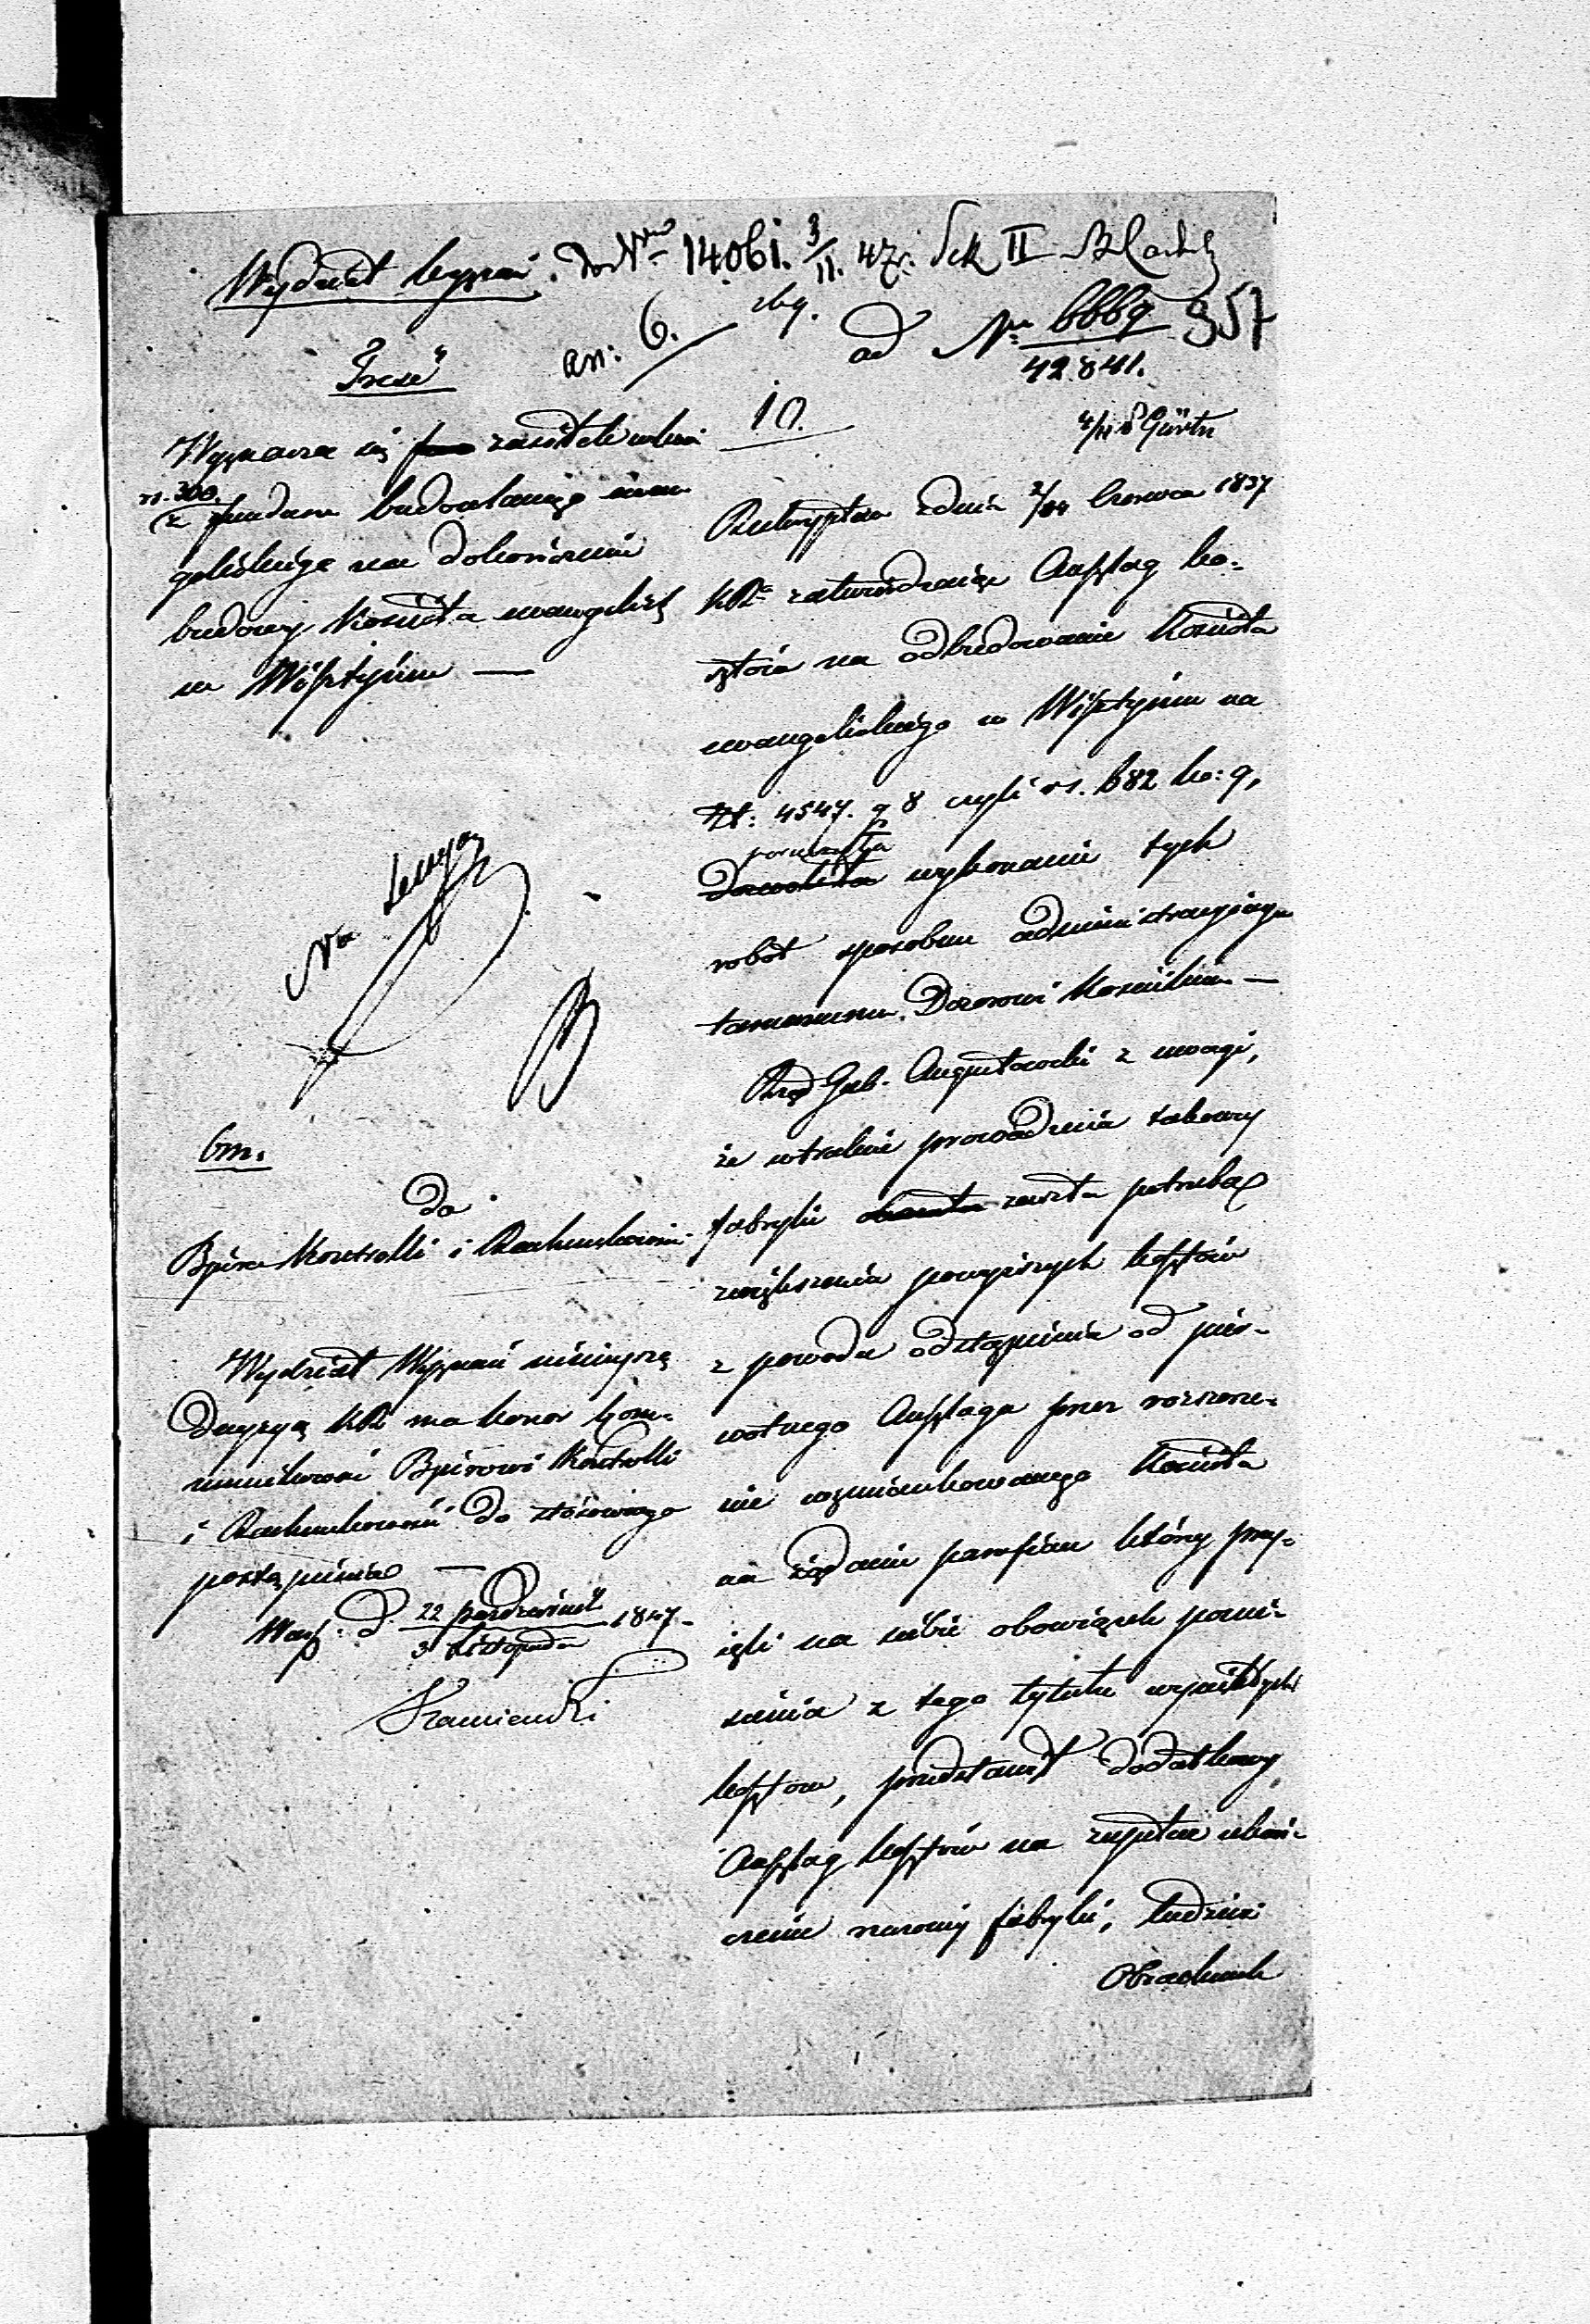 Wydział Wyznań. Do Nru 14061. 3/11. 47 r. Sek II
an: 6. ad Nr 6669 357
42.841.
Treść
10.
Wyznacza się zasiłek
rs. 300.
z funduszu budowlanego ewan
gelickiego na dokończenie
budowy Kościoła ewangelick
w Wisztyńcu —
Na
6m.
Do
Biura Kontrolli i Rachunkowości
Wydział Wyznań niniejszą
Decyzyą KR ma honor kom-
munikować Biurowi Kontrolli
i Rachunkowości do stosownego
postąpienia —
Warsz: d. 22 października 1847.
3 Listopada
Reskryptem z dnia 2/14 Czerwca 1837
KR zatwierdzając Anszlag ko-
sztów na odbudowanie Kościoła
ewangelickiego w Wisztyńcu na
Zł: 4547. g 8 czyli rs. 682 ko: 9,
poruczyła
Dozwoliła wykonanie tych
robót sposobem administracyjnym
tamecznemu Dozorowi Kościelnemu —
Rząd Gub. Augustowski z uwagi,
że w trakcie prowadzenia takowej
fabryki zaszła potrzeba
zwiększenia powyższych kosztów
z powodu odstąpienia od pier-
wotnego Anszlagu przez rozszerze-
nie wzmiankowanego Kościoła
na żądanie parafian którzy przy-
ięli na siebie obowiązek ponie-
sienia z tego tytułu wynikłych
kosztów, przedstawił dodatkowy
Anszlag kosztów na zupełne ukoń-
czenie rzeczonej fabryki, tudzież
Obrachunek